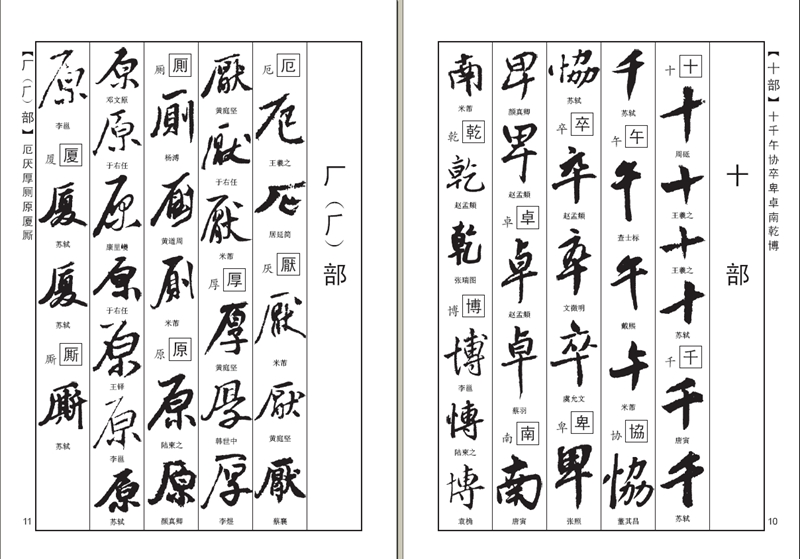 【十部】十千午协卒卑卓南乾博
十部
十 十
十
周砥
十
王羲之
十
王羲之
十
苏轼
千 千
千
唐寅
千
苏轼
千
苏轼
午 午
午
查士标
午
戴熙
午
米芾
协 協
協
董其昌
協
苏轼
卒 卒
卒
赵孟頫
卒
文徵明
卒
虞允文
卑 卑
卑
张照
卑
颜真卿
卑
赵孟頫
卓 卓
卓
赵孟頫
卓
蔡羽
南 南
南
唐寅
南
米芾
乾 乾
乾
赵孟頫
乾
张瑞图
博 博
博
李邕
博
陆柬之
博
袁桷
10
厂（厂）部
厄 厄
厄
王羲之
厄
居延简
厌 厭
厭
米芾
厭
黄庭坚
厭
蔡襄
厭
黄庭坚
厭
于右任
厭
米芾
厚 厚
厚
黄庭坚
厚
韩世中
厚
李煜
厕 厠
厠
杨溥
黄道周
厠
米芾
原 原
原
陆柬之
原
颜真卿
原
邓文原
原
于右任
原
康里巎
原
于右任
原
王铎
原
李邕
原
苏轼
原
李邕
厦 厦
厦
苏轼
厦
苏轼
厮 厮
厮
苏轼
【厂（厂）部】厄厌厚厕原厦厮
11